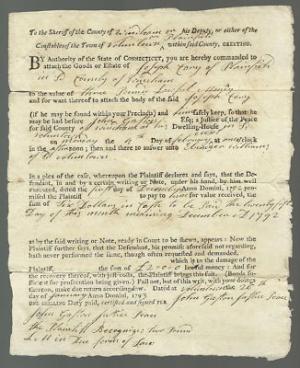 To the Sheriff of the County of Windham or his Deputy, or either of the
Constables of the Town of Voluntown Plainfield within said County, GREETING.
BY Authority of the State of CONNECTICUT, you are hereby commanded to
attach the Goods or Estate of Joseph Cary of Plainfield
in Sd County of Windham
to the value of three Pounds Lawful Money
and for want thereof to attach the body of the said Joseph Cary
(if he may be found within your Precincts) and him safely keep, so that he
may be had before John Gaston Esq; a Justice of the Peace
for said County of Windham at his Dwelling-house in Sd
Voluntown
on Monday the of February at one o'clock
in the afternoon; then and there to answer unto
of Sd voluntown
In a plea of the case, whereupon the Plaintiff declares and says, that the De-
fendant, in and by a certain writing or Note, under his hand, by him well
executed, dated the day of December Anno Domini, 1792 pro-
mised the Plaintiff to pay to for value received, the
sum of Six Dollars in to be paid the twenty
Day of this month meaning December AD 1792
as by the said writing or Note, ready in Court to be shewn, appears: Now the
Plaintiff further says, that the Defendant, his promise aforesaid not regarding,
hath never performed the same, though often requested and demanded.
which is to the damage of the
Plaintiff, the sum of £3=0=0 lawful money: And for
the recovery thereof, with just costs, the Plaintiff brings this suit.
for prosecution being given.) Fail not, but of this writ, with your doings
thereon, make due return according to law. Dated at Voluntown the 26th
day of January Anno Domini, 1793
Duty paid, certified and signed PER John Gaston Justice Peace
John Gaston Justice Peace
the Plaintiff Recognizes two Pound
L M in Due form of Law